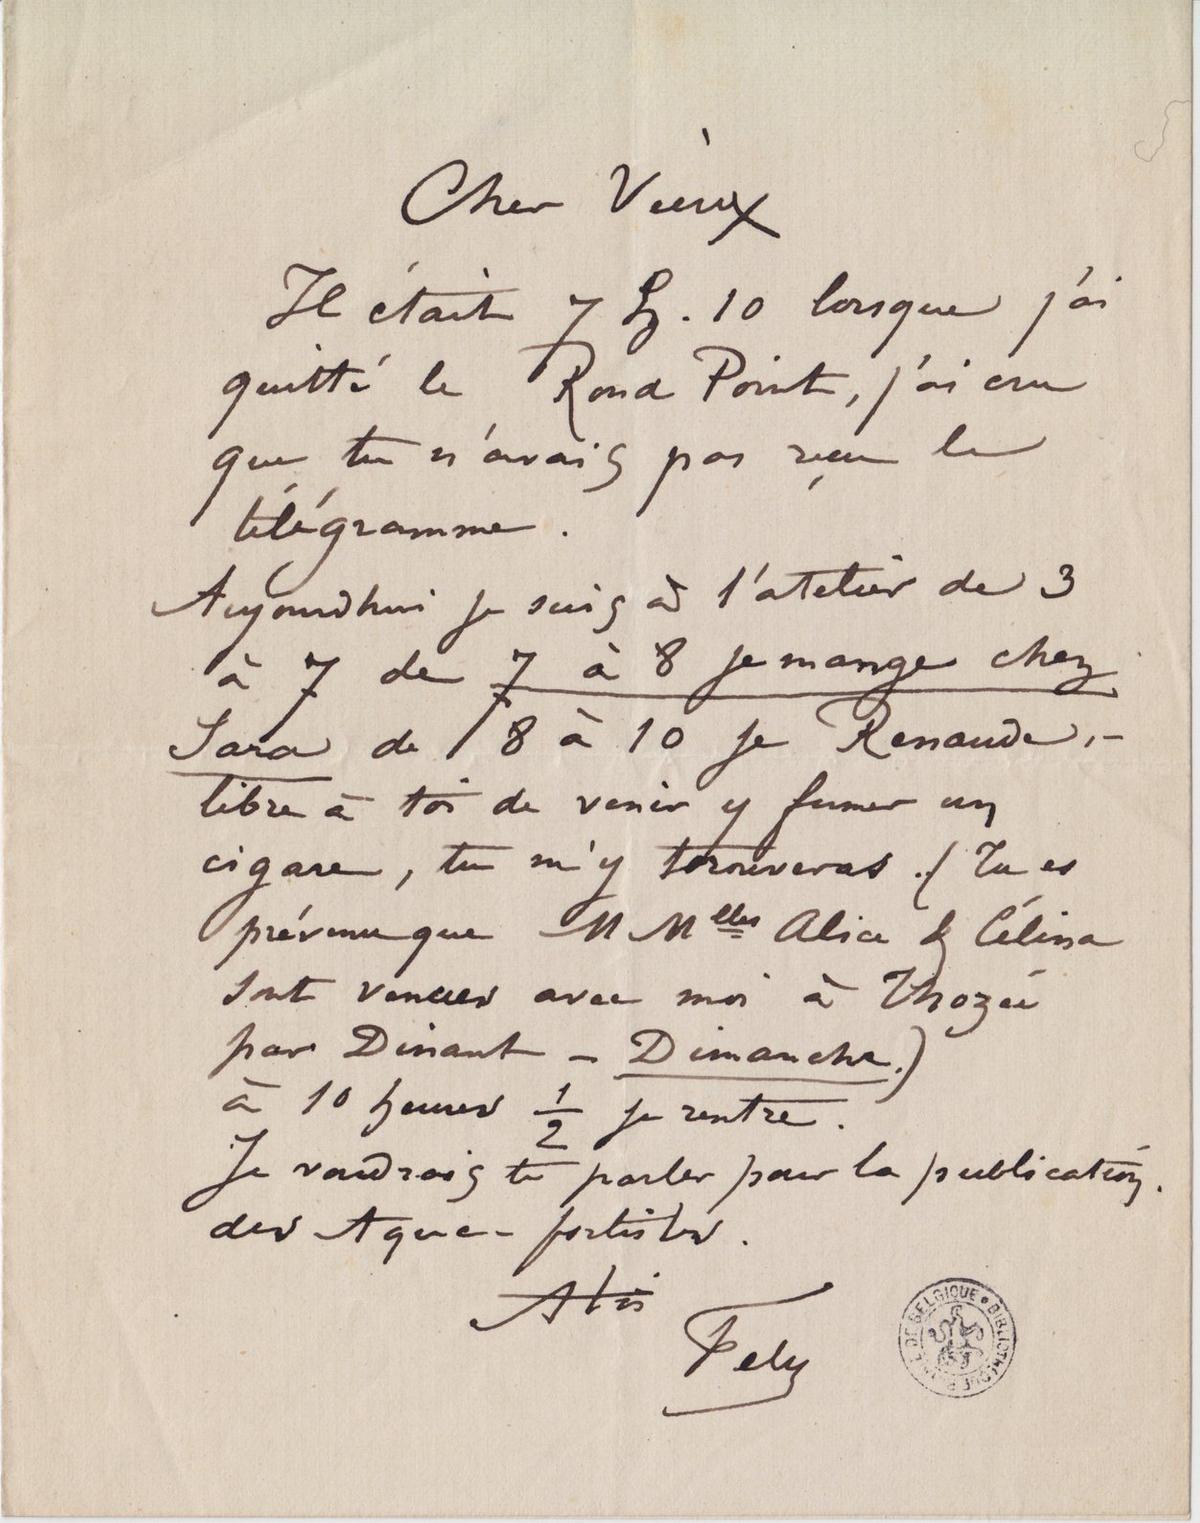 Cher Vieux
Il était 7 h. 10 lorsque j'ai
quitté le Rond Point, j'ai cru
que tu n'avais pas reçu le
télégramme.
Aujourdhui je suis à l'atelier de 3
à 7 de 7 à 8 je mange chez
Sara de 8 à 10 je Renaude, –
libre à toi de venir y fumer un
cigare, tu m'y trouveras. (Tu es
prévenu que MMelles Alice & Célina
sont venues avec moi à Thozée
par Dinant – Dimanche.)
à 10 heures 1/2 je rentre.
Je voudrais te parler pour la publication.
des Aqua-fortistes.
Fely
BIBLIOTHEQUE ROYALE DE BELGIQUE